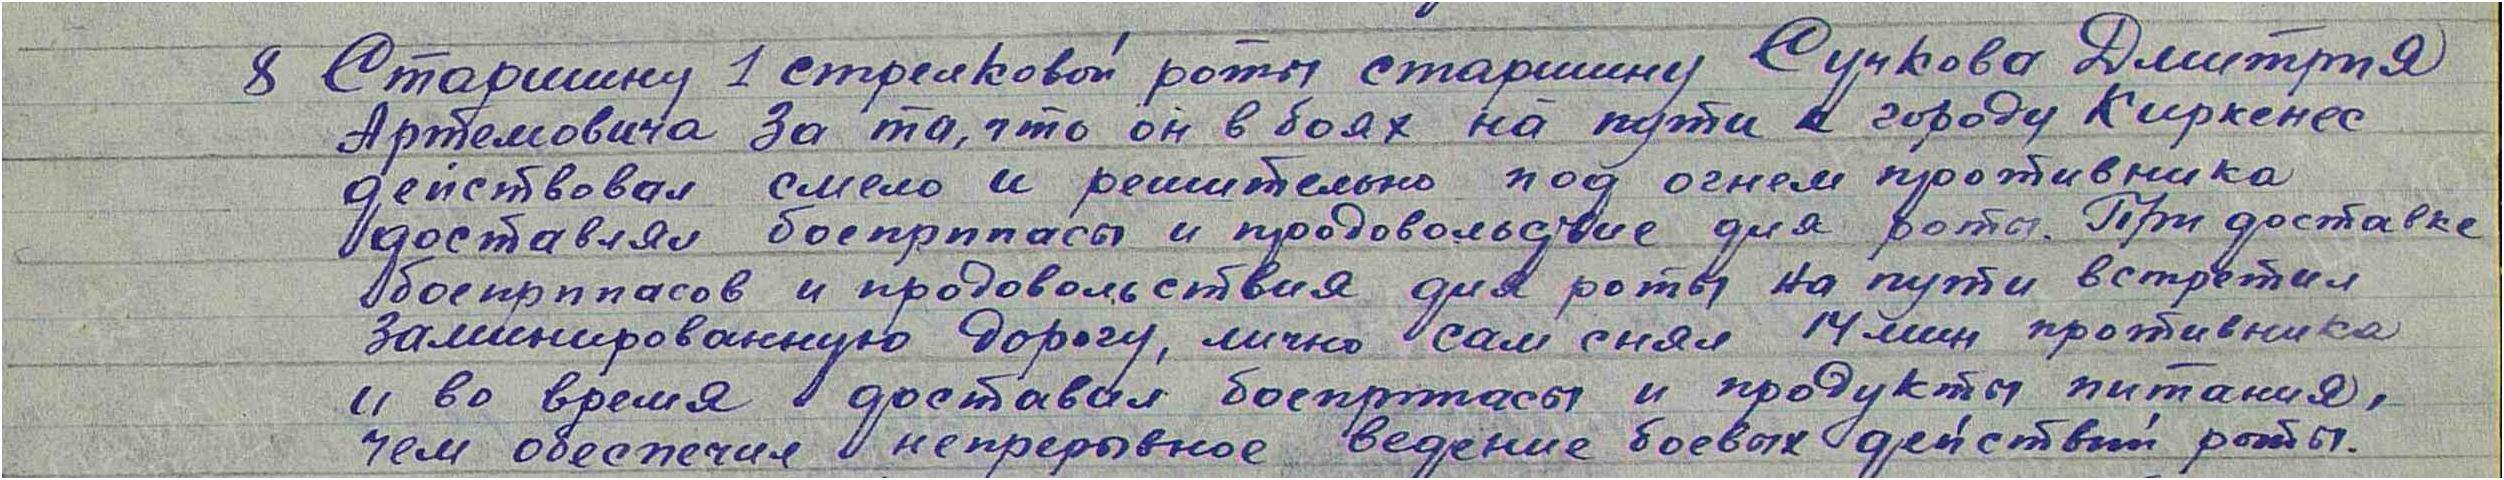 8 Старшину 1 стрелковой роты старшину Сучкова Дмитрия
Артемовича За та, что он в боях на пути к городу Киркенес
действовал смело и решительно под огнем противника
доставлял боеприпасы и продовольствие для роты. При доставке
боеприпасов и продовольствия для роты на пути встретил
заминированную дорогу, лично сам снял 14 мин противника
и во время доставил боеприпасы и продукты питания,
чем обеспечил непрерывное ведение боевых действий роты.